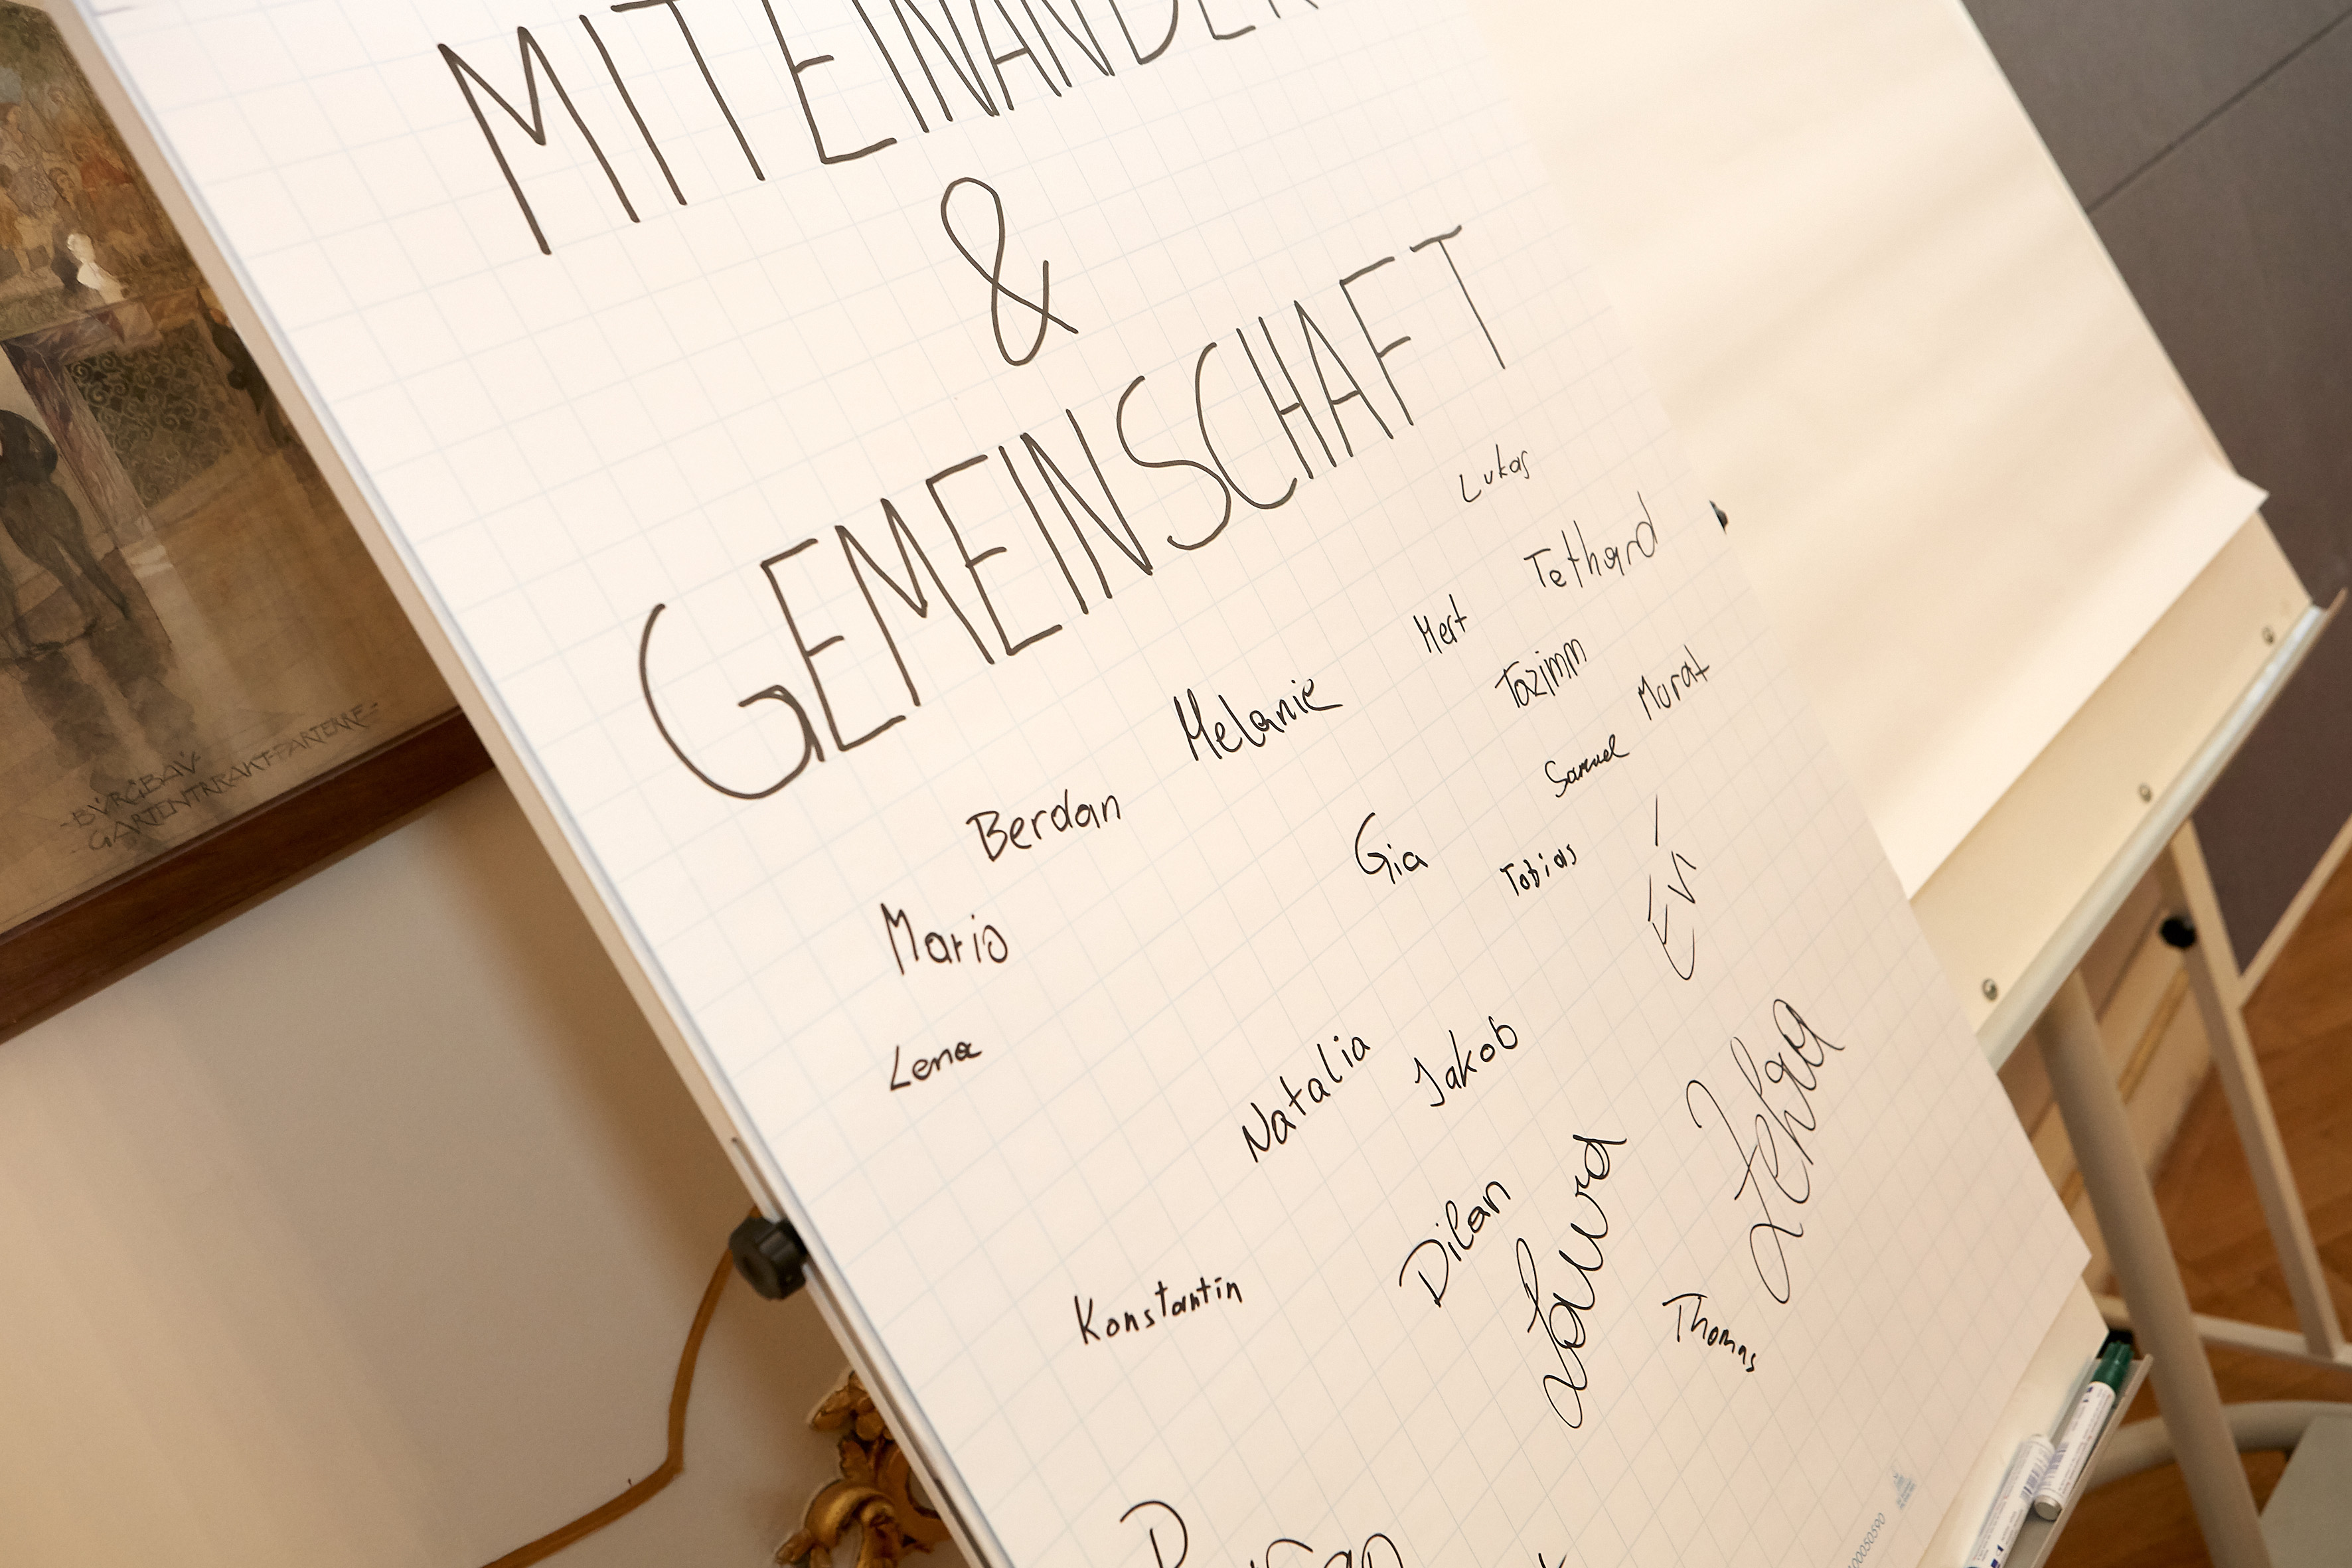 MITEINANDER
&
GEMEINSCHAFT
Lukas
Tethard
Mert
Tazimm
Murat
Melanie
Samuel
Berdan
Gia
Tobias
Evi
Mario
Lena
Natalia
Jakob
Zehra
Dilan
Laura
Konstantin
Thomas
-BURGBAV-
-GARTENTRAKT-PARTERRE-